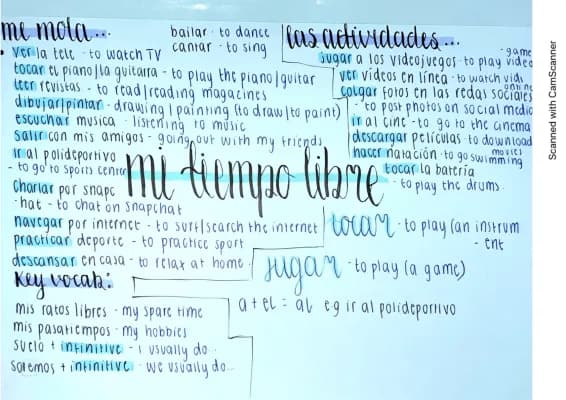 me mola...
bailar - to dance
cantar - to sing
• ver la tele - to watch TV
tocar el piano/la guitarra - to play the piano/guitar
leer revistas - to read/reading magazines
dibujar/pintar - drawing/painting (to draw/to paint)
escuchar musica - listening to music
salir con mis amigos - going out with my friends
ir al polideportivo
- to go to sports center
charlar por snapc
-hat - to chat on snapchat
navegar por internet - to surf/search the internet
practicar deporte - to practice sport
descansar en casa - to relax at home
mi tiempo libre
las actividades...
- game
jugar a los videojuegos - to play video
ver videos en línea - to watch vids
online
colgar fotos en las redas sociales
- to post photos on social media
ir al cine - to go to the cinema
descargar películas - to download
movies
hacer natación - to go swimming
tocar la batería
- to play the drums
tocar - to play (an instrum
- ent
jugar - to play (a game)
a + el = al eg ir al polideportivo
Key vocab:
mis ratos libres - my spare time
mis pasatiempos - my hobbies
suelo + infinitive - i usually do...
solemos + infinitive - we usually do...
Scanned with CamScanner